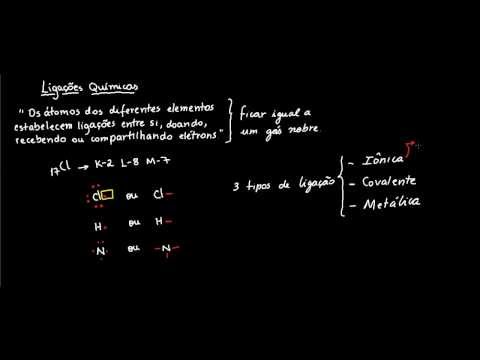 Ligações Químicas
"Os átomos dos diferentes elementos
estabelecem ligações entre si, doando,
recebendo ou compartilhando elétrons"
ficar igual a
um gás nobre.
17Cl → K-2 L-8 M-7
Cl ou Cl-
H ou H-
N ou -N-
3 tipos de ligação
- Iônica
- Covalente
- Metálica